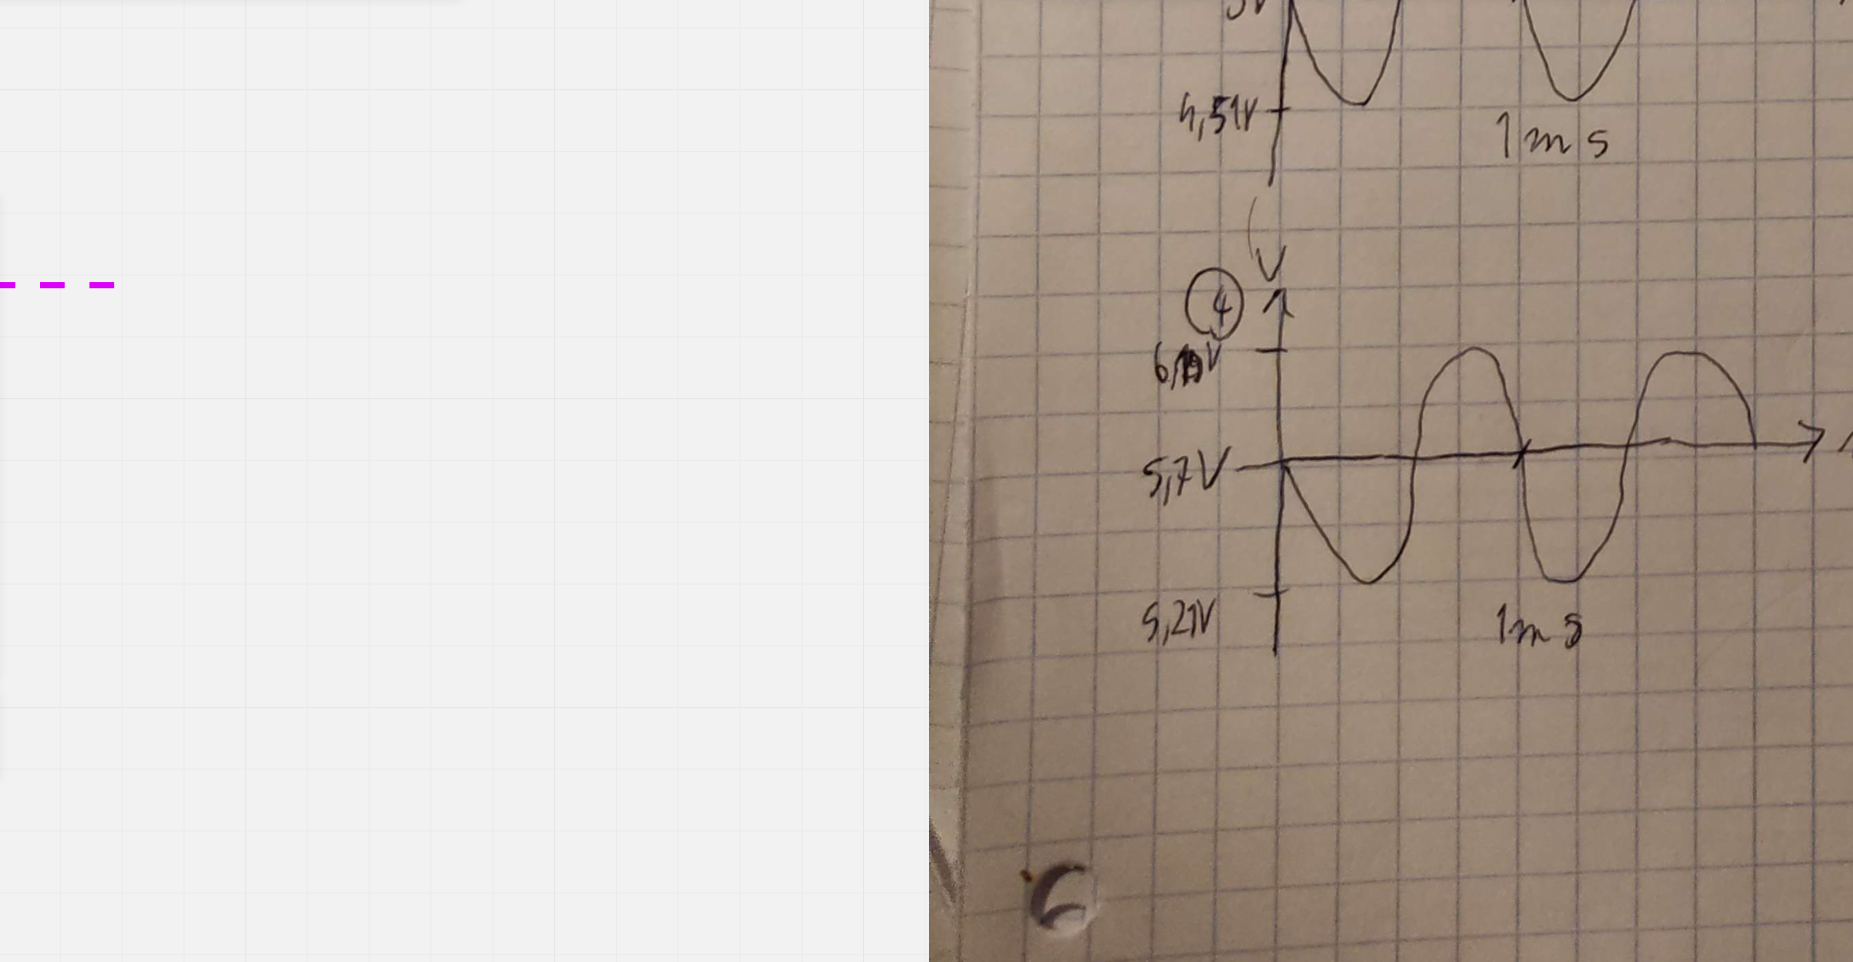 4,51V
1ms
V
4
5,7V
5,21V
1ms